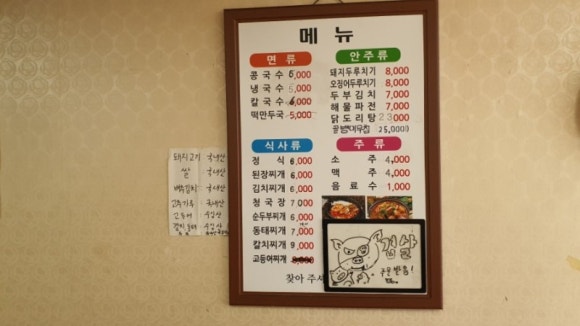 메 뉴
면 류
콩국수 6,000
냉국수 5,000
칼국수 6,000
떡만두국 5,000
안주류
돼지두루치기 8,000
오징어두루치기 8,000
두부김치 7,000
해물파전 7,000
닭도리탕 23000
25,000
식사류
정 식 6,000
된장찌개 6,000
김치찌개 6,000
청국장 7000
순두부찌개 6,000
동태찌개 7,000
칼치찌개 9,000
고등어찌개
주 류
소 주 4,000
맥 주 4,000
음료수 1,000
찾아 주셔
겹살
주문 받음!
돼지고기 국내산
쌀 국내산
배추김치 국내산
고추가루 국내산
고등어 수입산